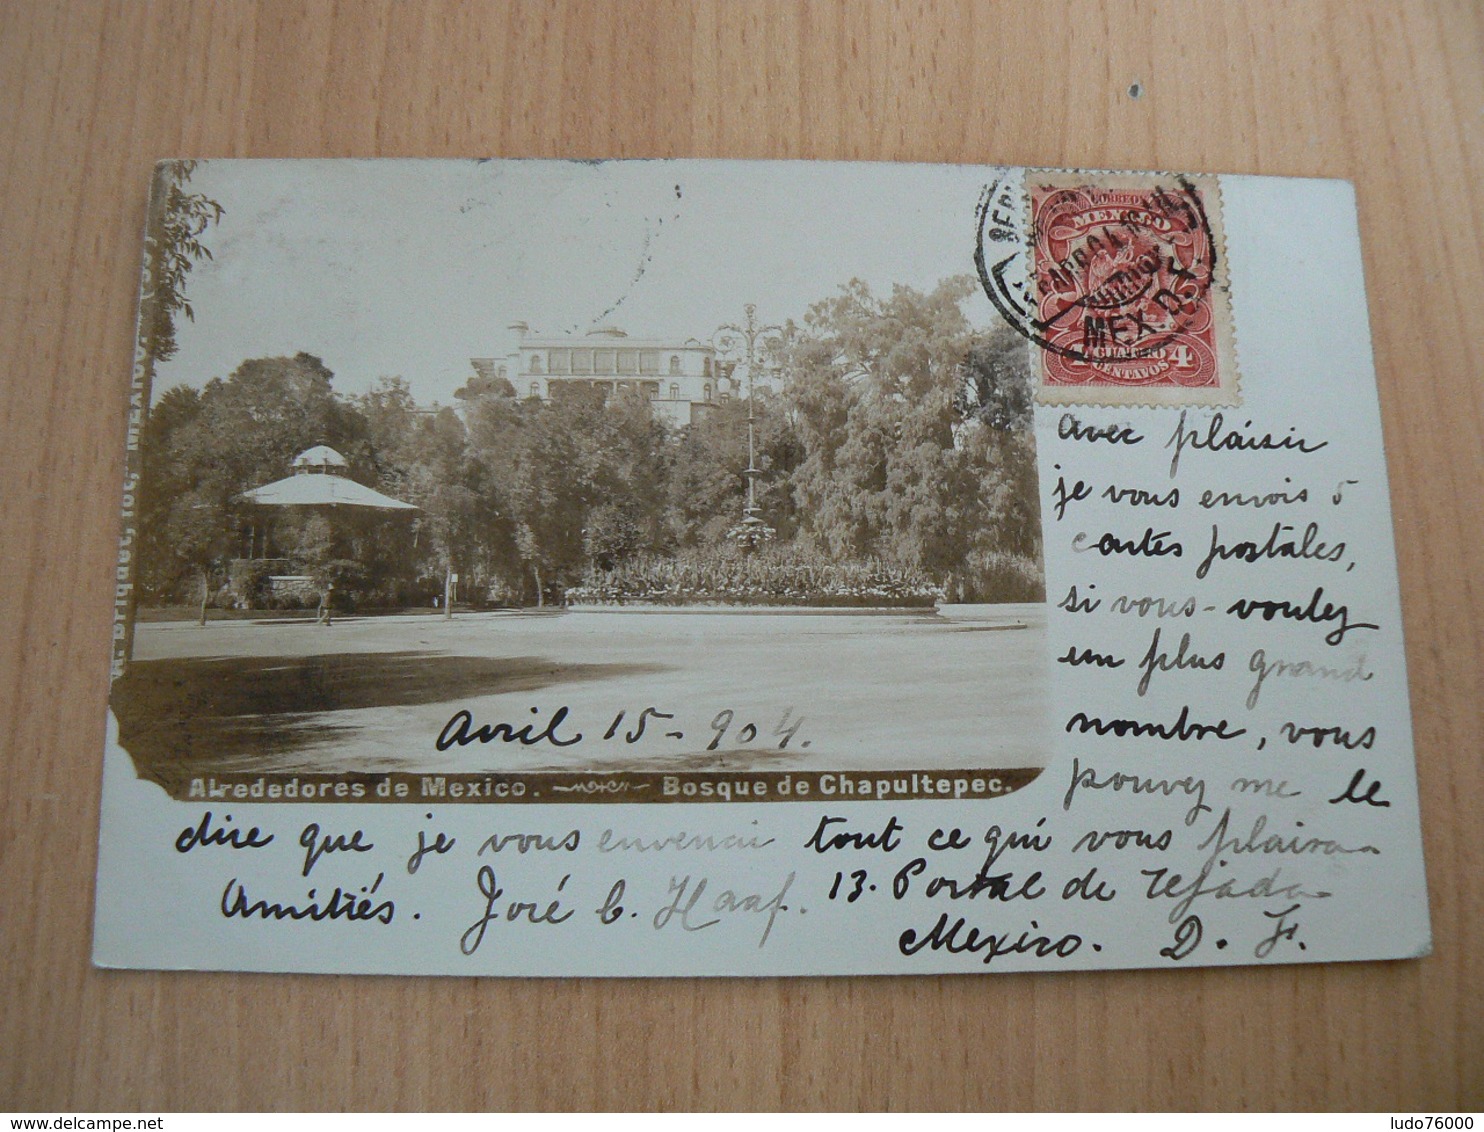 CORREOS
MEXICO
MEX. D.F.
4 CUATRO 4
CENTAVOS
Avec plaisir
je vous envois 5
cartes postales,
si vous-voulez
un plus grand
nombre, vous
pouvez me le
dire que je vous envenai tout ce qui vous plairaa
Avril 15-904.
Alrededores de Mexico. Bosque de Chapultepec.
Amitiés. José C. Haaf. 13. Portal de Tejada
Mexico. D. F.
Briquet,
ludo76000